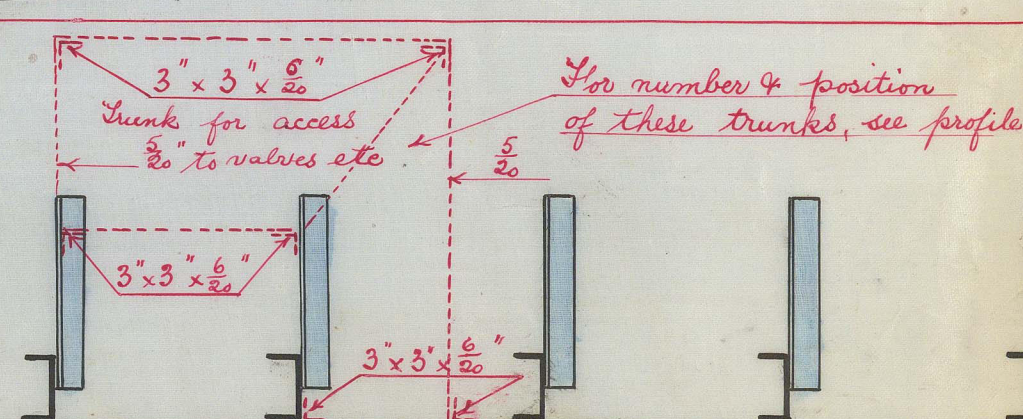 3" x 3" x 6/20"
Trunk for access
5/20" to valves etc
For number & position
of these trunks, see profile
5/20
3" x 3" x 6/20"
3" x 3" x 6/20"